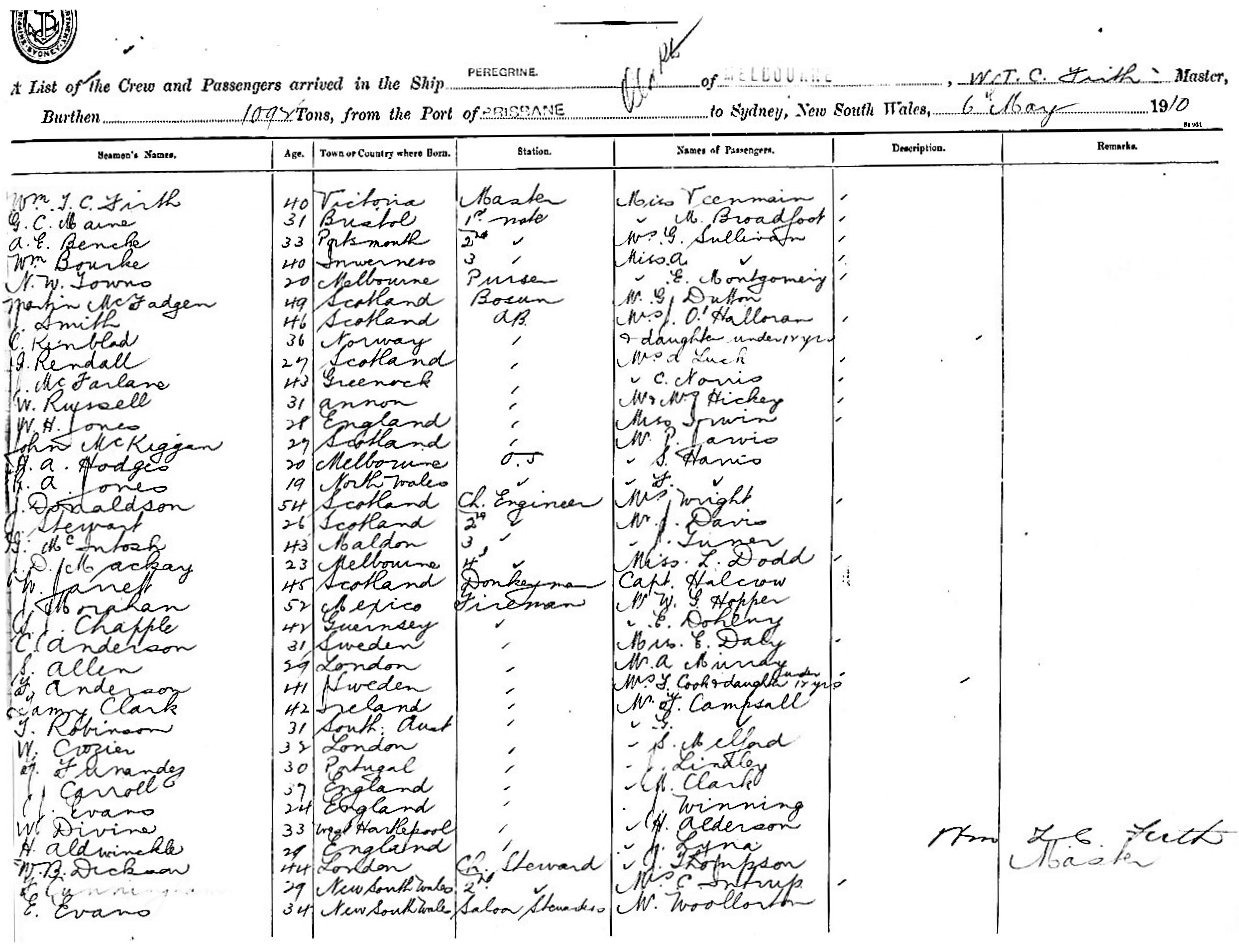 PEREGRINE.
A List of the Crew and Passengers arrived in the Ship of MELBOURNE, W. T. C. Firth Master,
Burthen 1092 Tons, from the Port of BRISBANE to Sydney, New South Wales, 6 May 1910
Seamen's Names. Age. Town or Country where Born. Station. Names of Passengers. Description. Remarks.
Wm. T. C. Firth 40 Victoria Master Miss Veenmain
G. C. Maine 31 Bristol 1st mate " M. Broadfoot
A. E. Bencke 33 Portsmouth 2nd " Mrs G. Sullivan
Wm Bourke 40 Inverness 3 " Miss A "
N. W. Towns 20 Melbourne Purser " E. Montgomery
Martin McFadgen 49 Scotland Bosun Mr. G. Dutton
J. Smith 46 Scotland A.B. Mrs J. O'Halloran
C. Kinblad 36 Norway " & daughter under 12 yrs
Rendall 27 Scotland " Mrs A Luck
McFarlane 43 Greenock " " C. Norris
W. Russell 31 Annon " Mr & Mrs Hickey
W. H. Jones 28 England " Miss Irwin
John McKiggan 27 Scotland " Mr P. Jarvis
A. Hodges 20 Melbourne O.S " S. Harris
A. Jones 19 North Wales " " F. "
J. Donaldson 54 Scotland Ch. Engineer Mrs Wright
Stewart 26 Scotland 2nd " Mr J. Davis
G. McIntosh 43 Maldon 3 " " J. Turner
D. Mackay 23 Melbourne 4 " Miss. L. Dodd
W. Jarrett 45 Scotland Donkeyman Capt. Halcrow
J. Morahan 52 Mexico Fireman Mr W. G. Hopper
Chapple 42 Guernsey " " E. Doheny
C. Anderson 31 Sweden " Miss. E. Daly
S. Allen 29 London " Mr. A Murray
F. Anderson 41 Sweden " Mrs F. Cook & daughter under 12 yrs
Clark 42 Ireland " Mr. F. Campsall
T. Robinson 31 South. Aust " " G. "
W. Crozier 32 London " " S. Mellard
Furnandez 30 Portugal " " J. Lindley
J. Carroll 37 England " " Clark
J. Evans 24 England " " J. Winning
W. Divine 33 West Hartlepool " " H. Alderson
H. Aldwinckle 29 England " " J. Lyna Wm T. C. Firth
W. B. Dickson 44 London Ch. Steward " J. Thompson Master
Cunningham 29 New South Wales 2nd " Mrs C Intrup
E. Evans 34 New South Wales Saloon Stewardess Mr. Woollorton